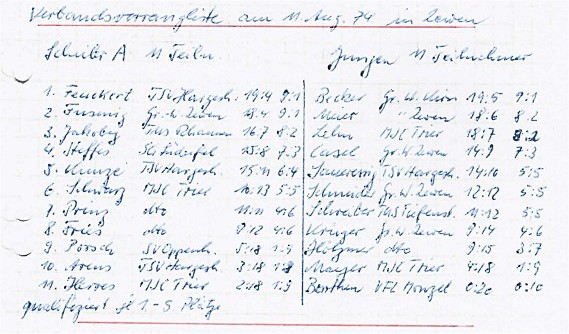 Verbandsvorrangliste am 11. Aug. 74 in Zewen
Schüler A 11 Teiln. Jungen 11 Teilnehmer
1. Feuckert TSV Hargesh. 19:4 9:1 Becker Gr. W. 19:5 9:1
2. 18:4 9:1 Meier " Zewen 18:6 8:2
3. Jakoby TuS Rhaunen 16:7 8:2 Lehn MJC Trier 18:7 8:2
4. Steffes SG 15:8 7:3 Gr. W. Zewen 14:9 7:3
5. Kunze TSV Hargesh. 15:11 6:4 TSV Hargesh. 14:10 5:5
6. Schwarz MJC Trier 10:13 5:5 Schneider Gr. W. Zewen 12:12 5:5
7. Prinz dto 11:11 4:6 Schreiber TuS Tiefenst. 11:12 5:5
8. Fries dto 9:12 4:6 Krüger Gr. W. Zewen 9:14 4:6
9. Porsch SV Oppenh. 5:18 1:9 Hölzmer dto 9:15 3:7
10. Arens TSV Hargesh. 3:18 1:9 Maeger MJC Trier 4:18 1:9
11. MJC Trier 2:18 1:9 VFL Monzel 0:20 0:10
qualifiziert je 1.-5 Plätze